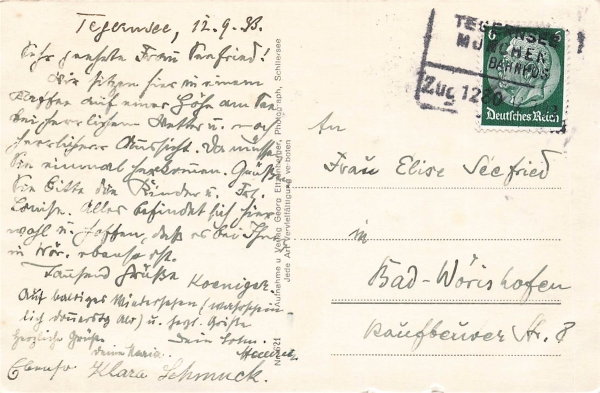 Tegernsee, 12.9.33.
Sehr geehrte Frau Seefried!
Wir sitzen hier in einem
Kaffee auf einer Höhe am See
bei herrlichem Wetter u. noch
herrlicherer Aussicht. Da müssen
Sie einmal herkommen. Grüßen
Sie bitte die Kinder u. Frl.
Louise. Alles befindet sich hier
wohl u. hoffen, daß es bei Ihnen
in Wör. ebenso ist.
Tausend Grüße Koeniger.
Auf baldiges Wiedersehen (wahrschein-
lich Donnerstg) u. herzl. Grüße
Herzliche Grüße Dein
Deine Maria.
Ebenso Klara Schmuck.
Aufnahme u. Verlag Georg Photograph, Schliersee
Jede Art Vervielfältigung verboten
TEGERNSEE
MÜNCHEN
BAHNPOST
Zug
6 6
Deutsches Reich
An
Frau Elise Seefried
in
Bad-Wörishofen
Kaufbeurer Str. 8